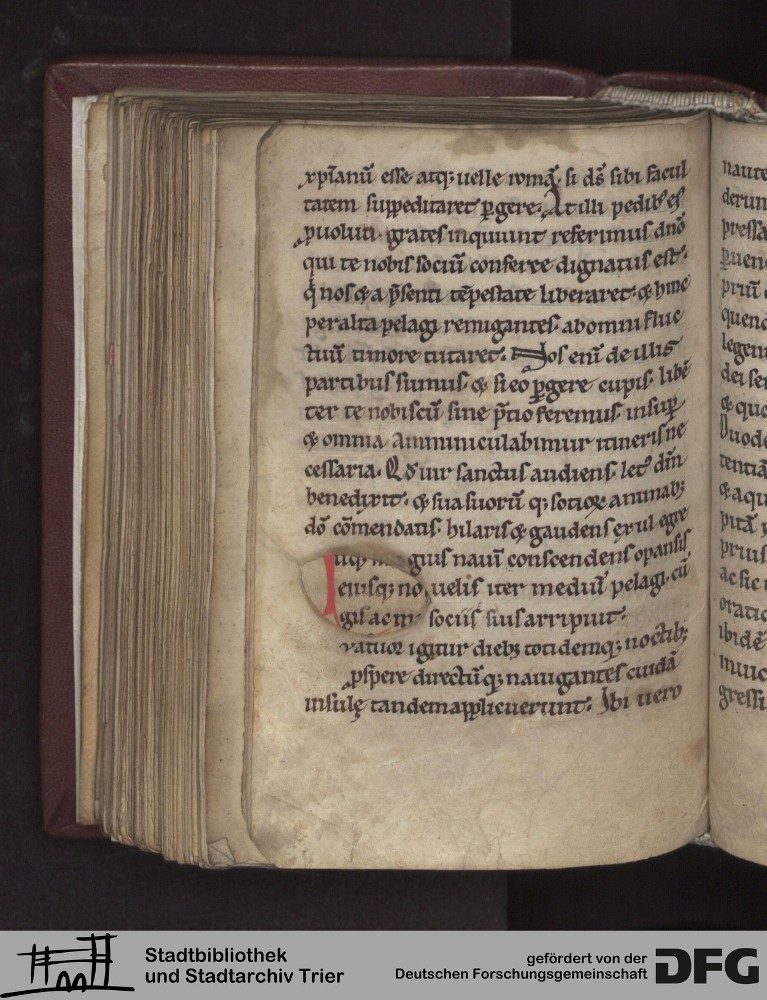 xpianū esse atq; uelle romā. si ds̄ sibi facul
tatem suppeditaret ꝑgere. At illi pedib; eꝰ
ꝓuoluti. grates inquiunt referimus dn̄o
qui te nobis sociū conferre dignatus est.
q̇ nos & a p̄senti tēpestate liberaret. & hinc
per alta pelagi remigantes. ab omni fluc
tuū timore tutaret. Nos enī de illis
partibus sumus. & si eo ꝑgere cupis. libē
ter te nobiscū sine p̄tio feremus. insuꝑ
& omnia amminiculabimur itineris ne
cessaria. Qd̓ uir sanctus audiens. let dn̄m
benedixit. & sua suorū q; socioꝝ animab;
dō cōmendatis. hilaris & gaudens exul egre
gius nauī conscendens opansis
uelis iter mediū pelagi. cū
sociis suis arripuit.
vatuor igitur dieb; totidemq; noctib;
ꝓspere directūq; nauigantes cuidā
insulę tandem applicuerunt. Ibi uero
naute
derun
pressa
ꝑuen
priū
quend
legem
dei ser
& quo
Quode
tentiā
& aqu
pitā
prius
ac sic
oratio
ibidē
inuic
gressi
Stadtbibliothek
und Stadtarchiv Trier
gefördert von der
Deutschen Forschungsgemeinschaft
DFG